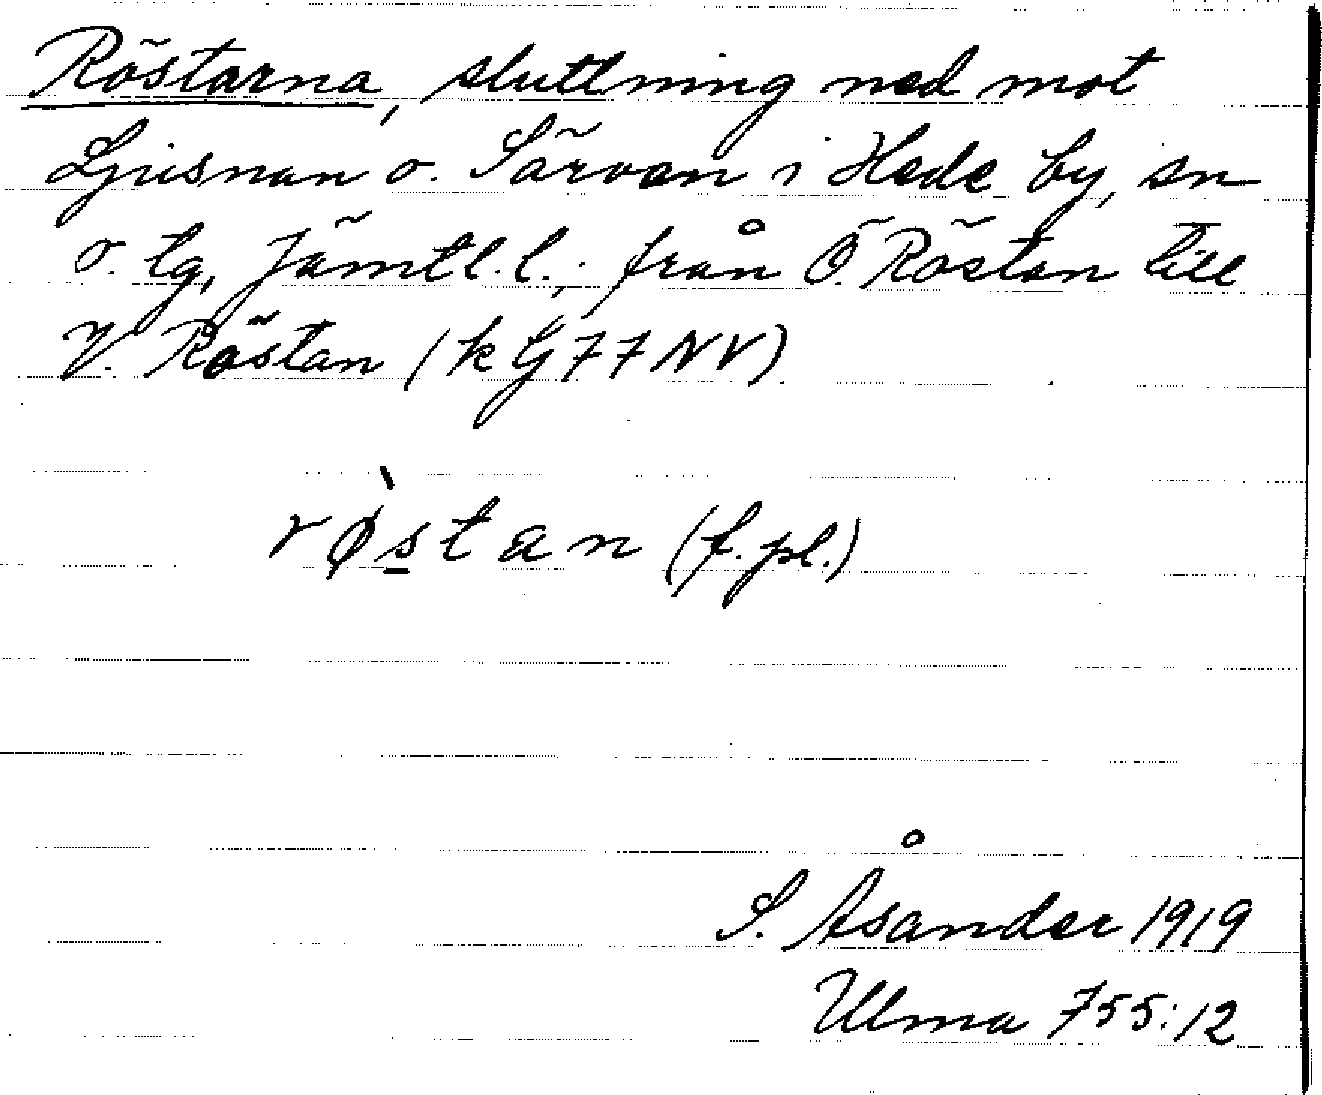 Röstarna, sluttning ned mot
Ljusnan o. Särvan i Hede by, sn
o. tg, Jämtl. l.; från Ö. Röstan till
V. Röstan (k G77NV)
røstan (f. pl.)
S. Åsander 1919
Ulma 755:12